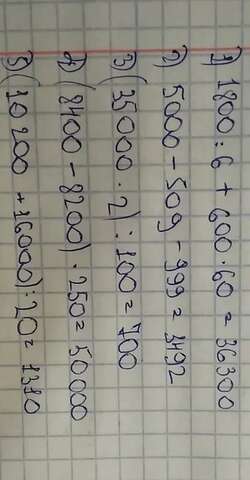 1) 1800 : 6 + 600 · 60 = 36300
2) 5000 - 509 - 999 = 3492
3) (35000 · 2) : 100 = 700
4) (8400 - 8200) · 250 = 50000
5) (10200 + 16000) : 20 = 1310